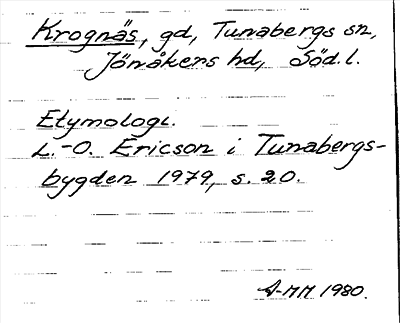 Krognäs, gd, Tunabergs sn,
Jönåkers hd, Södl.
Etymologi.
L.-O. Ericson i Tunabergs-
bygden 1979, s. 20.
A-MH 1980.